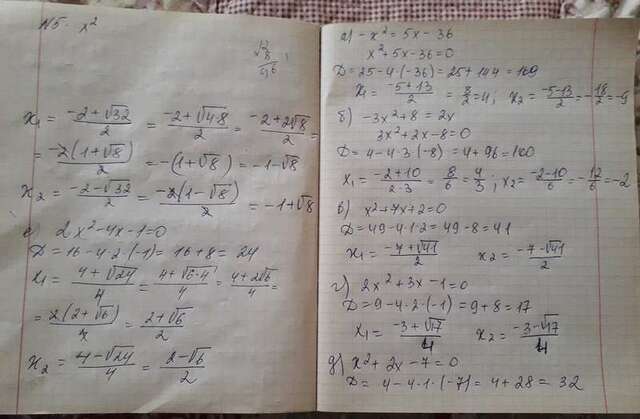 N5. x²
√32
x₁ = (-2+√32)/2 = (-2+√(4·8))/2 = (-2+2√8)/2 =
= -2(1+√8)/2 = -(1+√8) = -1-√8
x₂ = (-2-√32)/2 = -2(1-√8)/2 = -1+√8
е) 2x²-4x-1=0
D = 16-4·2·(-1) = 16+8 = 24
x₁ = (4+√24)/4 = (4+√(6·4))/4 = (4+2√6)/4 =
= 2(2+√6)/4 = (2+√6)/2
x₂ = (4-√24)/4 = (2-√6)/2
а) -x² = 5x-36
x²+5x-36=0
D = 25-4·(-36) = 25+144 = 169
x₁ = (-5+13)/2 = 8/2 = 4; x₂ = (-5-13)/2 = -18/2 = -9
б) -3x²+8 = 2x
3x²+2x-8=0
D = 4-4·3·(-8) = 4+96 = 100
x₁ = (-2+10)/(2·3) = 8/6 = 4/3; x₂ = (-2-10)/6 = -12/6 = -2
в) x²+7x+2=0
D = 49-4·1·2 = 49-8 = 41
x₁ = (-7+√41)/2 x₂ = (-7-√41)/2
г) 2x²+3x-1=0
D = 9-4·2·(-1) = 9+8 = 17
x₁ = (-3+√17)/4 x₂ = (-3-√17)/4
д) x²+2x-7=0
D = 4-4·1·(-7) = 4+28 = 32